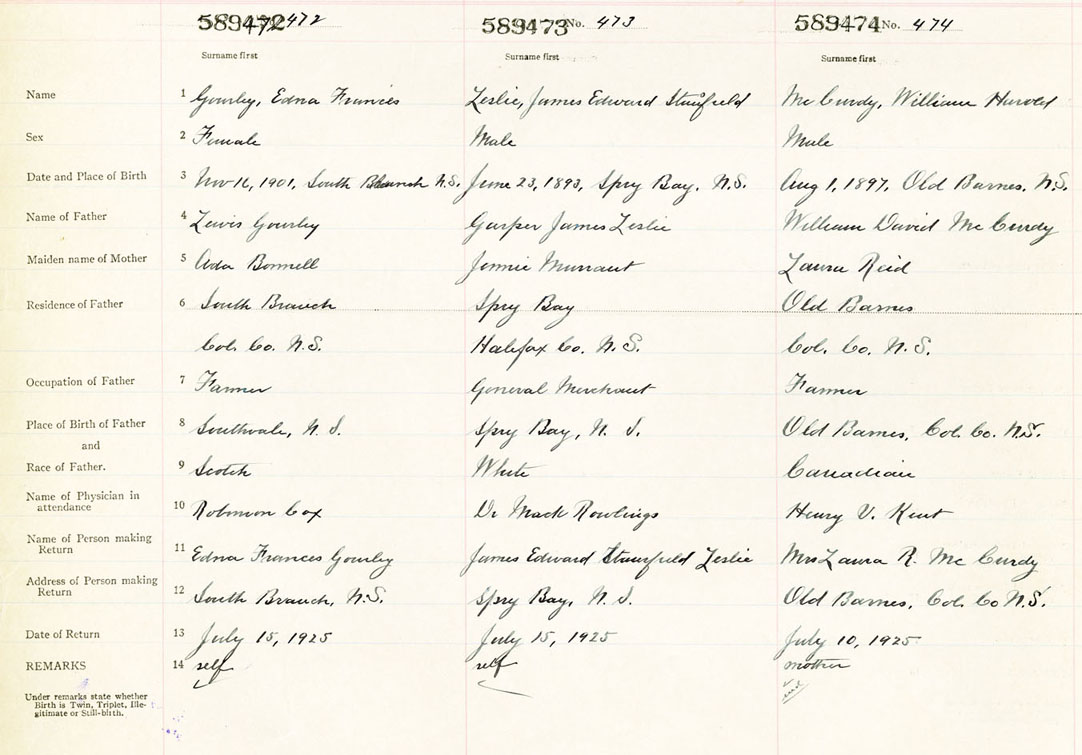 589472 472 589473 No. 473 589474 No. 474
Surname first Surname first Surname first
Name 1 Gourley, Edna Frances Leslie, James Edward Stanfield Mc Curdy, William Harold
Sex 2 Female Male Male
Date and Place of Birth 3 Nov 16, 1901, South Branch N.S. June 23, 1893, Spry Bay, N.S. Aug 1, 1897, Old Barnes, N.S.
Name of Father 4 Lewis Gourley Gasper James Leslie William David Mc Curdy
Maiden name of Mother 5 Ada Bonnell Jennie Laura Reid
Residence of Father 6 South Branch Spry Bay Old Barnes
Col. Co. N.S. Halifax Co. N.S. Col. Co. N.S.
Occupation of Father 7 Farmer General Merchant Farmer
Place of Birth of Father 8 Southvale, N.S. Spry Bay, N.S. Old Barnes, Col. Co. N.S.
and
Race of Father. 9 Scotch White Canadian
Name of Physician in
attendance 10 Robinson Cox Dr Mack Rowlings Henry V. Kent
Name of Person making
Return 11 Edna Frances Gourley James Edward Stanfield Leslie Mrs Laura R. Mc Curdy
Address of Person making
Return 12 South Branch, N.S. Spry Bay, N.S. Old Barnes, Col. Co N.S.
Date of Return 13 July 15, 1925 July 15, 1925 July 10, 1925
REMARKS 14 self self mother
Under remarks state whether
Birth is Twin, Triplet, Ille-
gitimate or Still-birth.